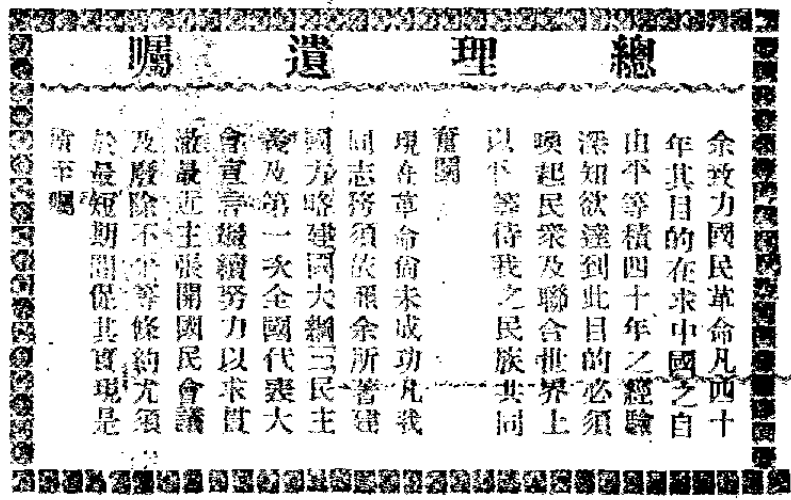 總理遺囑
余致力國民革命凡四十
年其目的在求中國之自
由平等積四十年之經驗
深知欲達到此目的必須
喚起民衆及聯合世界上
以平等待我之民族共同
奮鬬
現在革命尚未成功凡我
同志務須依照余所著建
國方略建國大綱三民主
義及第一次全國代表大
會宣言繼續努力以求貫
澈最近主張開國民會議
及廢除不平等條約尤須
於最短期間促其實現是
所至囑